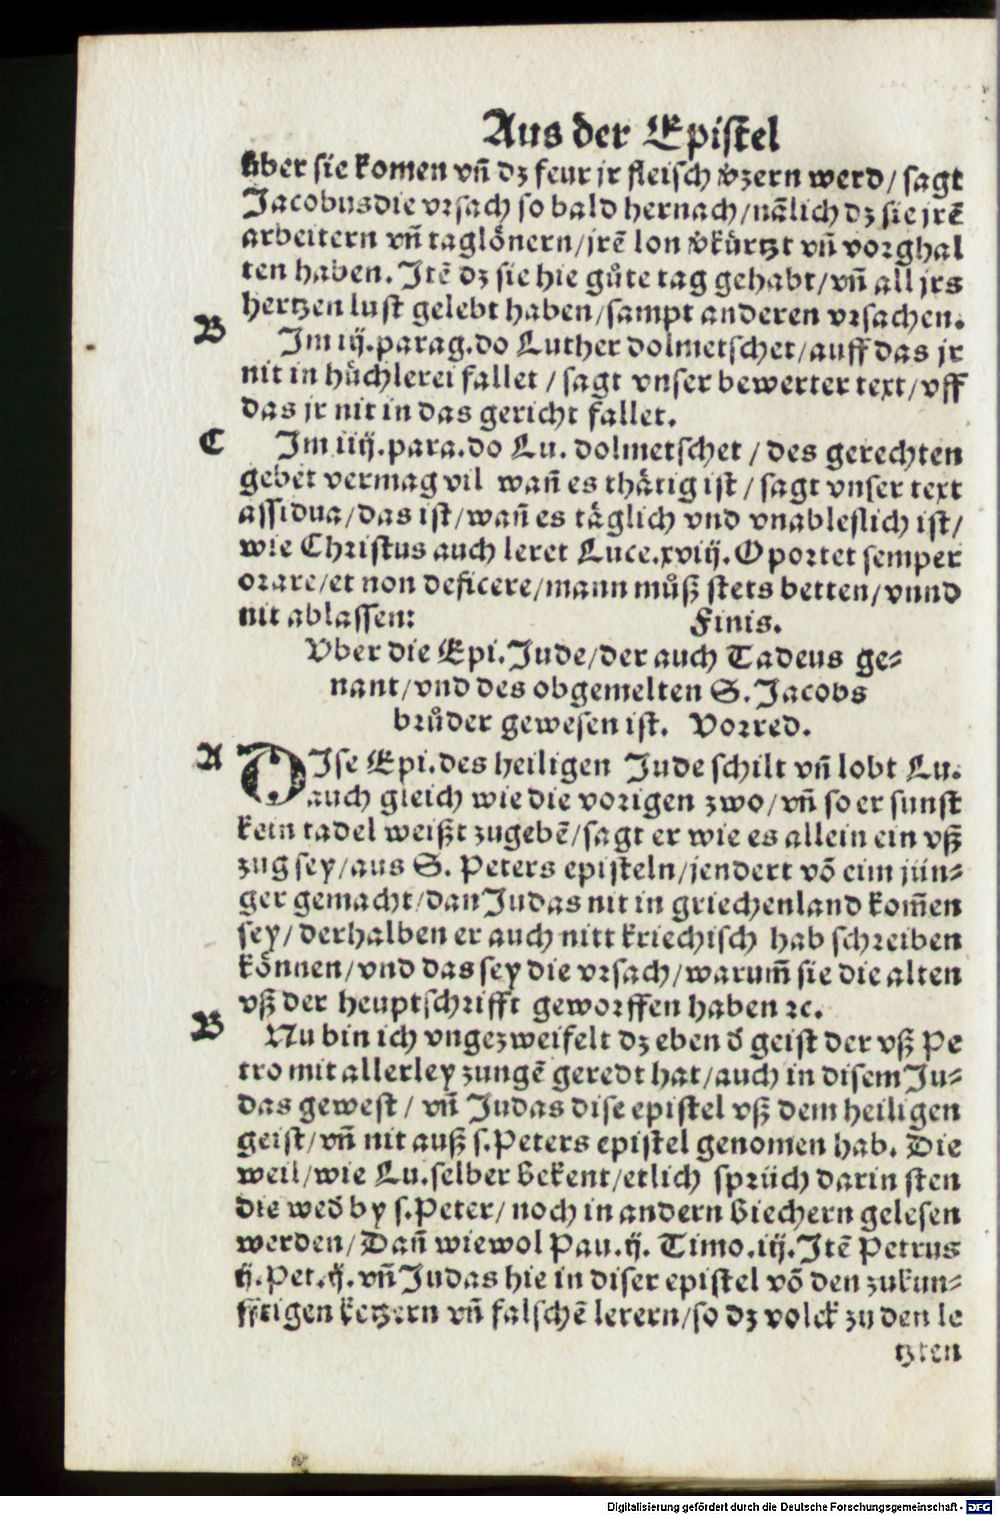 Aus der Epistel
über sie komen vñ dz feur jr fleisch v̊zern werd/ sagt
Jacobus die vrsach so bald hernach/nãlich dz sie jrẽ
arbeitern vñ taglönern/jrẽ lon v̊kürtzt vñ vorghal
ten haben. Jtẽ dz sie hie gůte tag gehabt/vñ all jrs
hertzen lust gelebt haben/sampt anderen vrsachen.
B
Jm iij.parag.do Luther dolmetschet/auff das jr
nit in hüchlerei fallet / sagt vnser bewerter text/vff
das jr nit in das gericht fallet.
C
Jm iiij.para.do Lu. dolmetschet / des gerechten
gebet vermag vil wañ es thätig ist / sagt vnser text
assidua/das ist/wañ es täglich vnd vnableslich ist/
wie Christus auch leret Luce.xviij. Oportet semper
orare/et non deficere/mann můß stets betten/vnnd
nit ablassen: Finis.
Vber die Epi.Jude/der auch Tadeus ge-
nant/vnd des obgemelten S.Jacobs
brůder gewesen ist. Vorred.
A
DJse Epi.des heiligen Jude schilt vñ lobt Lu.
auch gleich wie die vorigen zwo/vñ so er sunst
kein tadel weißt zugebẽ/sagt er wie es allein ein vß
zug sey/aus S. Peters episteln/jendert võ eim jün-
ger gemacht/dan Judas nit in griechenland kom̃en
sey/ derhalben er auch nitt kriechisch hab schreiben
können/vnd das sey die vrsach/warum̃ sie die alten
vß der heuptschrifft geworffen haben ꝛc.
B
Nu bin ich vngezweifelt dz eben d̉ geist der vß Pe
tro mit allerley zungẽ geredt hat/auch in disem Ju-
das gewest / vñ Judas dise epistel vß dem heiligen
geist/vñ nit auß s.Peters epistel genomen hab. Die
weil/wie Lu.selber bekent/etlich sprüch darin sten
die wed̉ by s.Peter/ noch in andern biechern gelesen
werden/Dañ wiewol Pau.ij. Timo.iij.Jtẽ Petrus
ij.Pet.ij.vñ Judas hie in diser epistel võ den zukün-
fftigen ketzern vñ falschẽ lerern/so dz volck zu den le
tzten
Digitalisierung gefördert durch die Deutsche Forschungsgemeinschaft - DFG